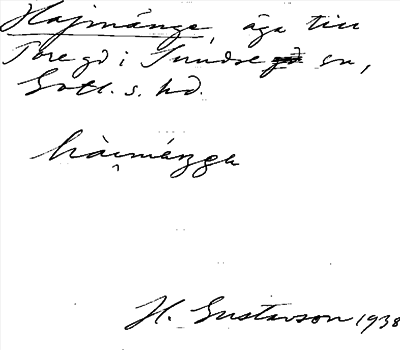 Hajmänge, äga till
Tore gd i Sundre sn,
Gotl. s. hd.
hàimánga
H. Gustavson 1938